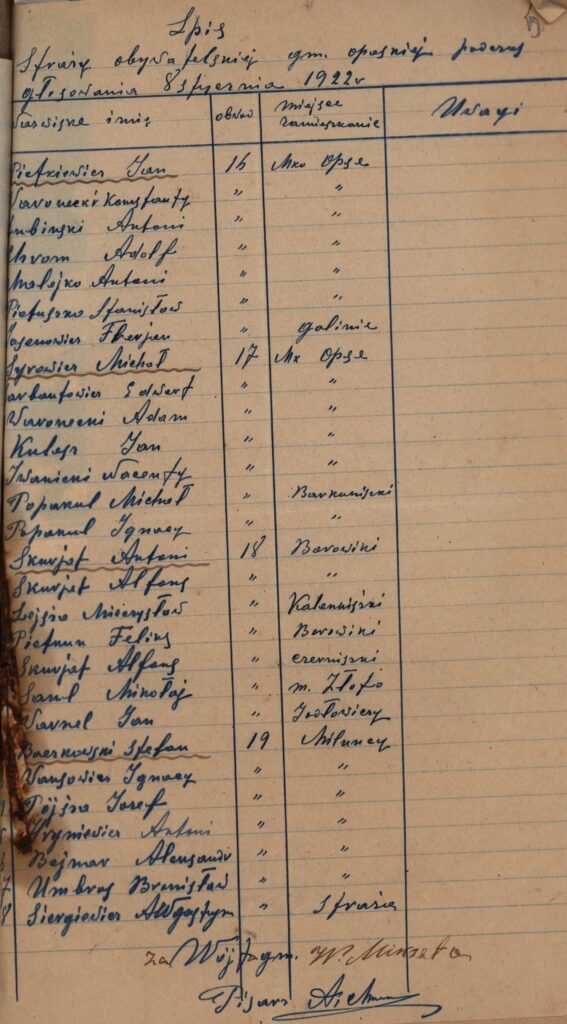 Spis
Straży obywatelskiej gm. opeskiej podczas
głosowania 8 stycznia 1922r
Nazwisko i imię obwód miejsce zamieszkanie Uwagi
Pietkiewicz Jan 16 Mko Opse
Waronecki Konstanty " "
Lubinski Antoni " "
Chrom Adolf " "
Malejko Antoni " "
Pietuszko Stanisław " "
Florjan " galinie
Syrowicz Michał 17 Mk Opse
Edwart " "
Waronecki Adam " "
Kulesz Jan " "
Iwanicki Wacenty " "
Popanul Michał " Barkuniszki
Popanul Ignacy " "
Skurjat Antoni 18 Borowiki
Skurjat Alfons " "
Łojszo Mieczysław " Kalenniszki
Pietkun Feliks " Borowiki
Skurjat Alfons " czerniszki
Saul Mikołaj " m. Złoto
Wavnel Jan " Jodłowiczy
Baczkowski Stefan 19 Miluncy
Wansowicz Ignacy " "
Pójszo Józef " "
Hryniewicz Antoni " "
6 Bejnar Aleksandr " "
7 Umbras Bronisław " "
8 Siergiewicz Awgostym " Straża
za Wójta gm.
Pisarz